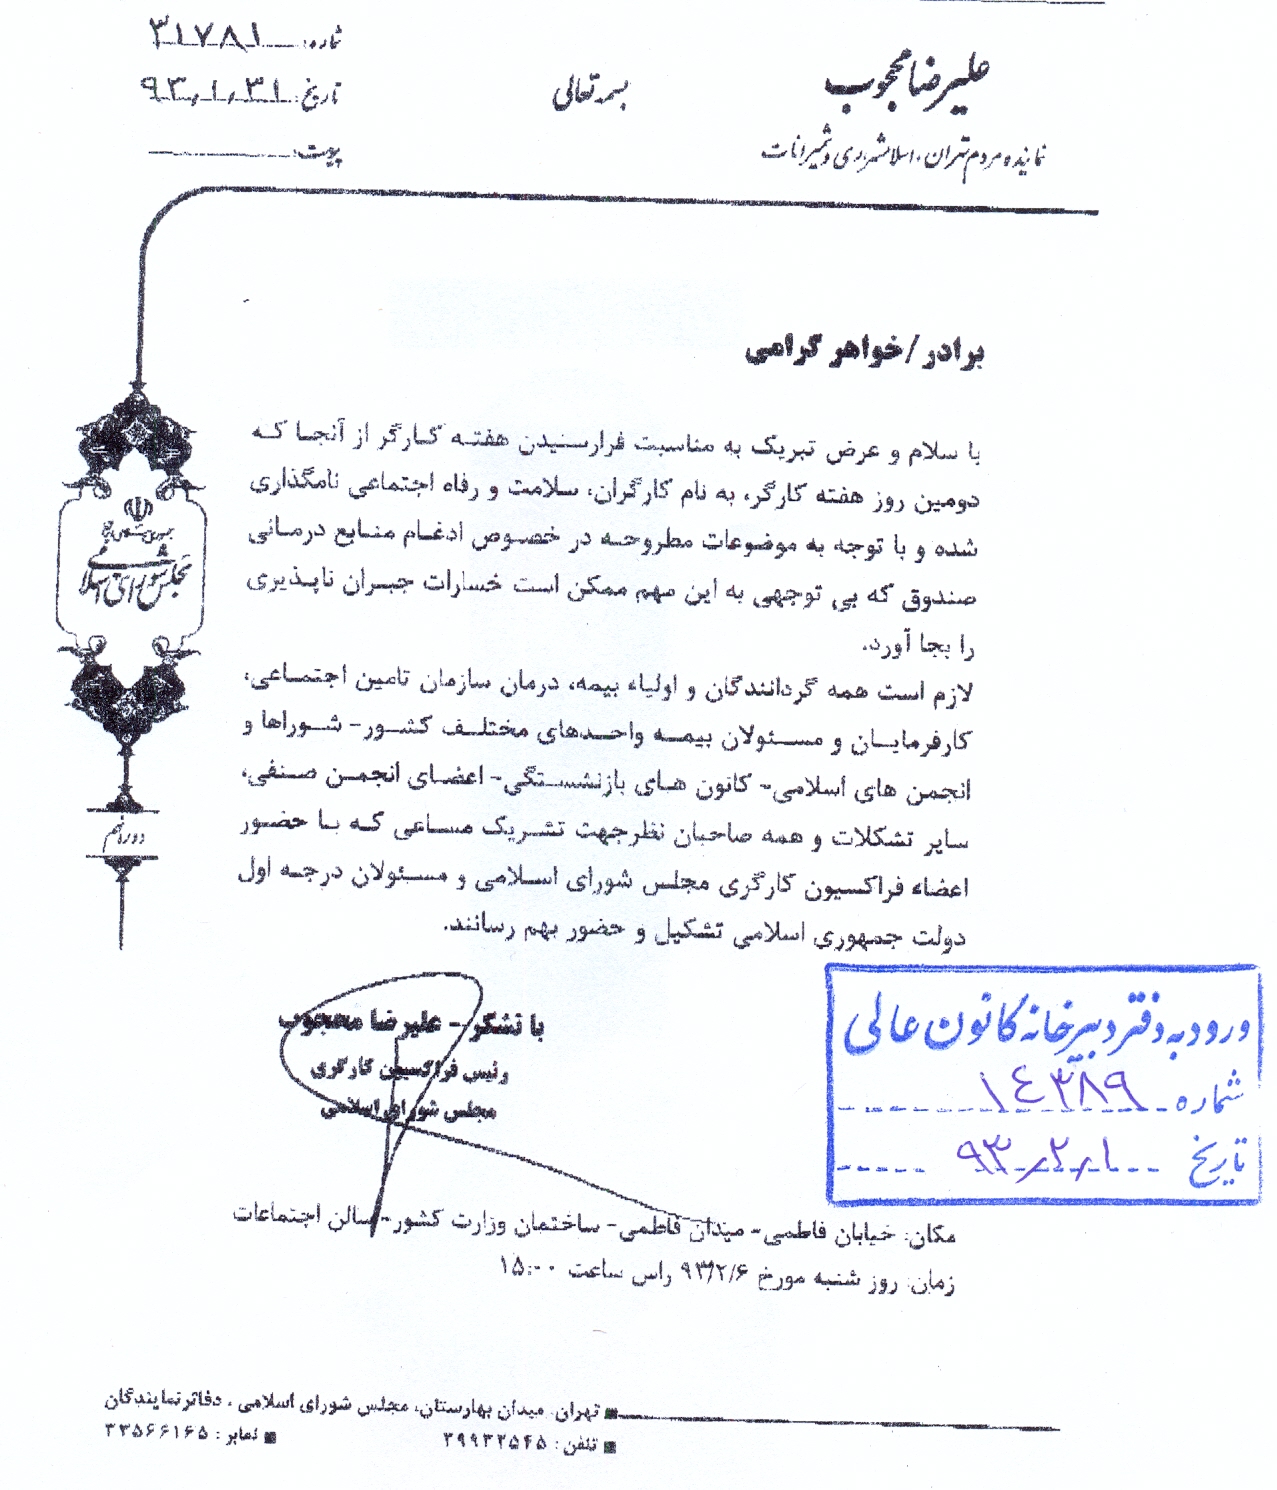 شماره: ۳۱۷۸۱
تاریخ: ۹۳,۱,۳۱
پیوست:
بسمه تعالی
علیرضا محجوب
نماینده مردم تهران، اسلامشهر، ری و شمیرانات
برادر/خواهر گرامی
با سلام و عرض تبریک به مناسبت فرارسیدن هفته کارگر از آنجا که
دومین روز هفته کارگر، به نام کارگران، سلامت و رفاه اجتماعی نامگذاری
شده و با توجه به موضوعات مطروحه در خصوص ادغام منابع درمانی
صندوق که بی توجهی به این مهم ممکن است خسارات جبران ناپذیری
را بجا آورد.
لازم است همه گردانندگان و اولیاء بیمه، درمان سازمان تامین اجتماعی،
کارفرمایان و مسئولان بیمه واحدهای مختلف کشور- شوراها و
انجمن های اسلامی- کانون های بازنشستگی- اعضای انجمن صنفی،
سایر تشکلات و همه صاحبان نظرجهت تشریک مساعی که با حضور
اعضاء فراکسیون کارگری مجلس شورای اسلامی و مسئولان درجه اول
دولت جمهوری اسلامی تشکیل و حضور بهم رسانند.
با تشکر - علیرضا محجوب
رئیس فراکسیون کارگری
مجلس شورای اسلامی
جمهوری اسلامی ایران
مجلس شورای اسلامی
دوره نهم
ورود به دفتر دبیرخانه کانون عالی
شماره ۱۴۳۸۹
تاریخ ۹۳,۲,۱
مکان: خیابان فاطمی- میدان فاطمی- ساختمان وزارت کشور- سالن اجتماعات
زمان: روز شنبه مورخ ۹۳/۲/۶ راس ساعت ۱۵:۰۰
تهران: میدان بهارستان، مجلس شورای اسلامی، دفاتر نمایندگان
تلفن: ۳۹۹۳۲۵۴۵ نمابر: ۳۳۵۶۶۱۶۵